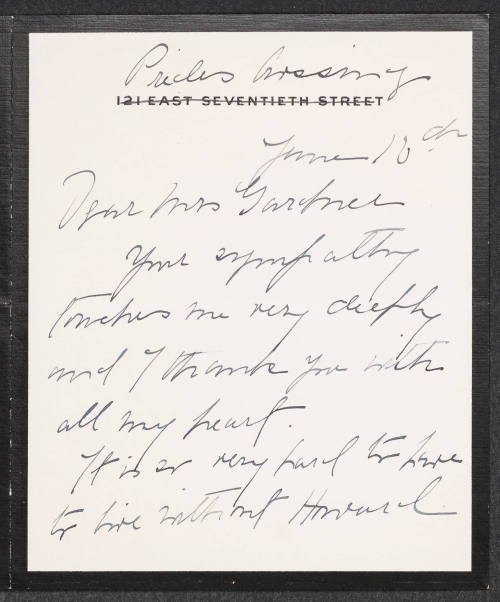 Prides Crossing
121 EAST SEVENTIETH STREET
June 10th
Dear Mrs Gardner
Your sympathy
touches me very deeply
and I thank you with
all my heart.
It is so very hard to have
to live without Howard.